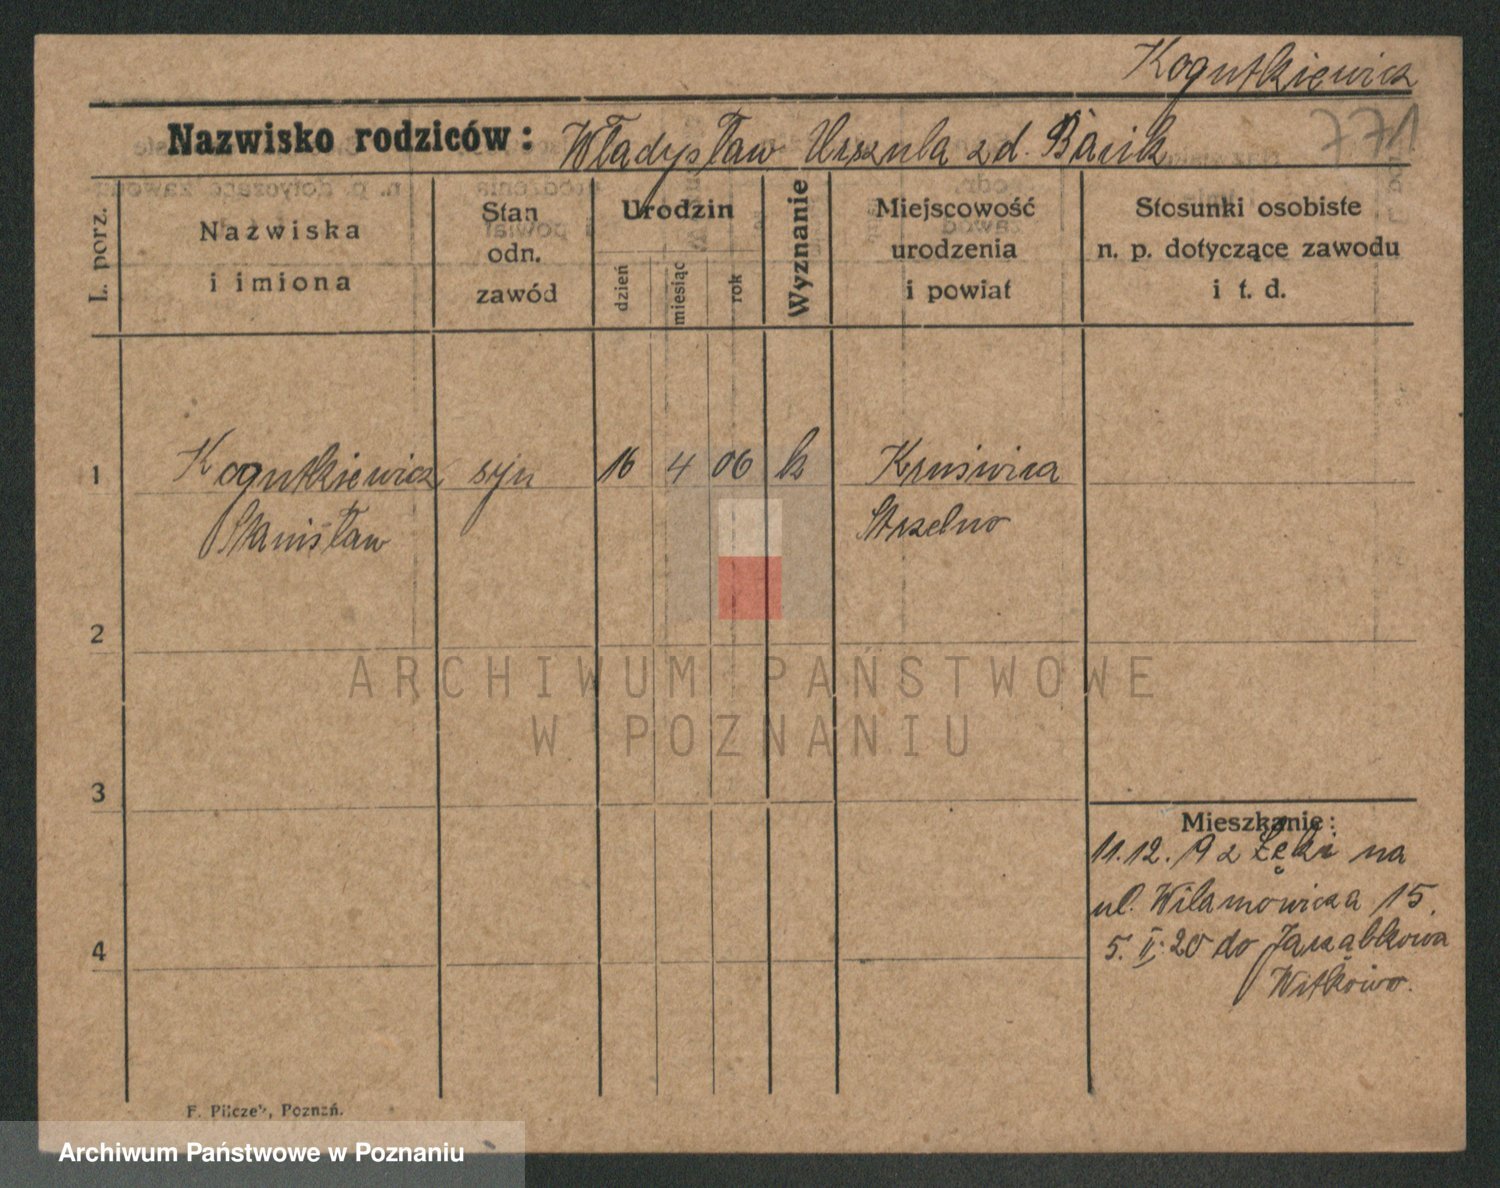 Kogutkiewicz
Nazwisko rodziców: Władysław Urszula z d.
L. porz.
Nazwiska
i imiona
Stan
odn.
zawód
Urodzin
dzień
miesiąc
rok
Wyznanie
Miejscowość
urodzenia
i powiat
Stosunki osobiste
n. p. dotyczące zawodu
i t. d.
1 Kogutkiewicz syn 16 4 06 k Kruświca
Stanisław Strzelno
2
ARCHIWUM PAŃSTWOWE
W POZNANIU
3
Mieszkanie:
11.12.19 z Łęki na
ul. Wilamowicza 15.
4
5. II. 20 do Jarząbkowa
Witkowo.
F. Pilczek, Poznań.
Archiwum Państwowe w Poznaniu